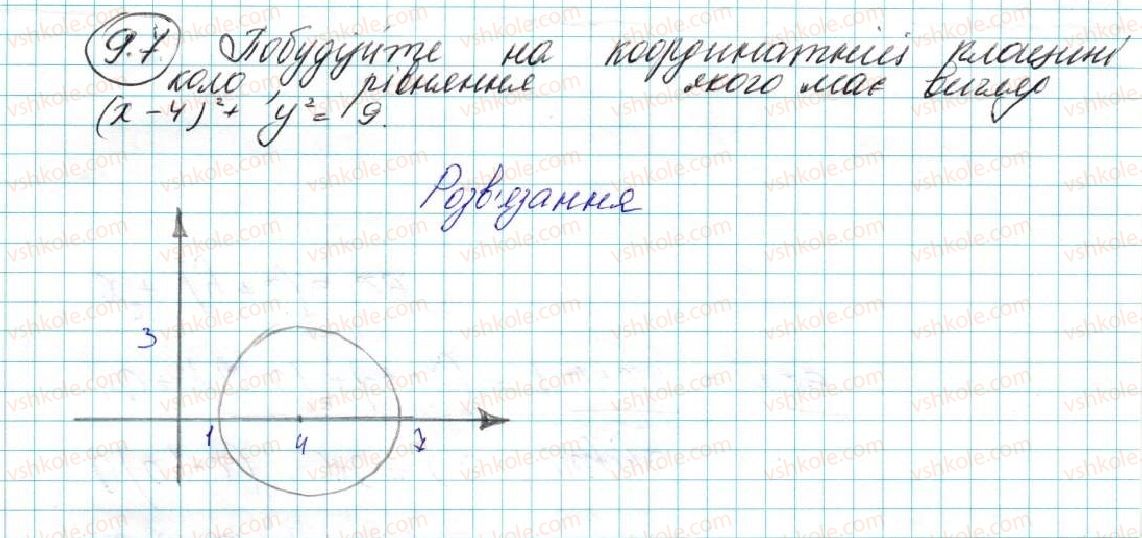 9.7 Побудуйте на координатній площині
коло, рівняння якого має вигляд
(x - 4)² + y² = 9.
Розв'язання
3
1 4 7